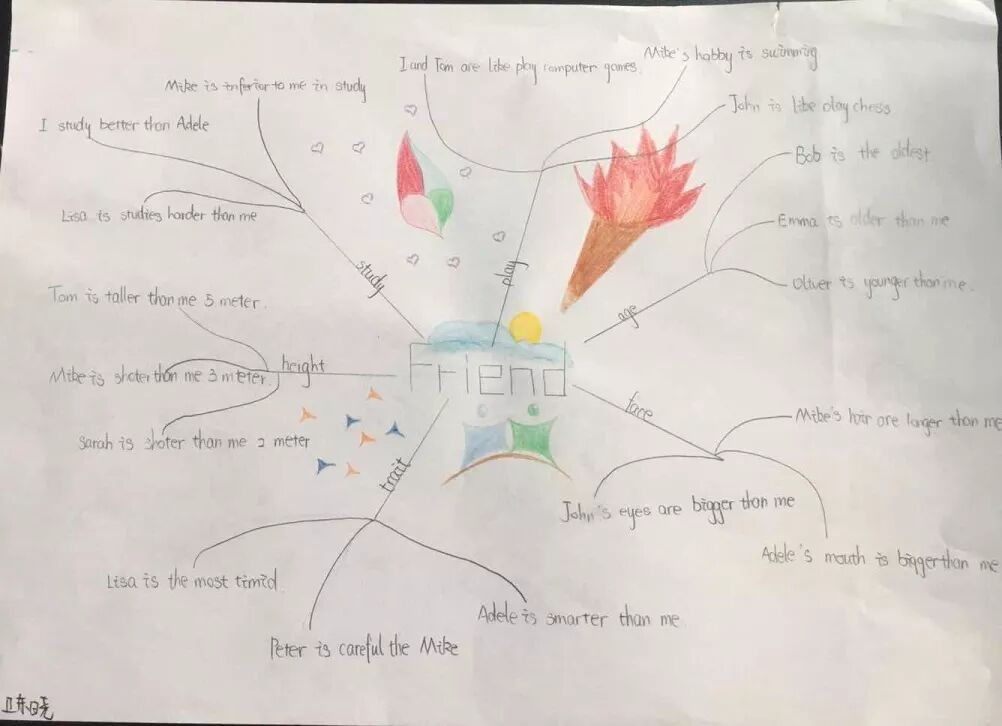 I and Tom are like play computer games.
Mike's hobby is swimming
John is like play chess
Mike is inferior to me in study
I study better than Adele
Lisa is studies harder than me
study
play
Bob is the oldest
Emma is older than me
Oliver is younger than me.
age
Tom is taller than me 5 meter.
Mike is shoter than me 3 meter.
Sarah is shoter than me 2 meter
height
Friend
face
Mike's hair are larger than me
John's eyes are bigger than me
Adele's mouth is bigger than me
trait
Lisa is the most timid
Peter is careful the Mike
Adele is smarter than me